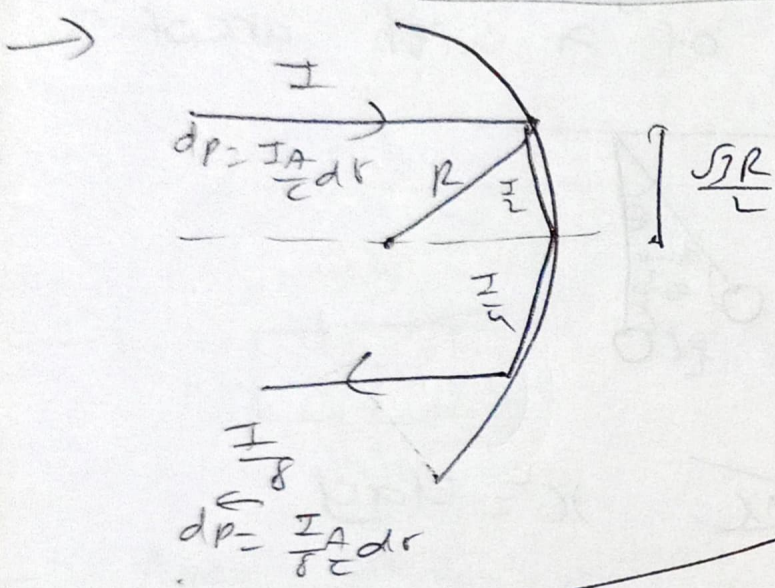 I
dp = IA/c dt
R
I/2
√3R/2
I/4
I/8
dp = I/8 A/c dt